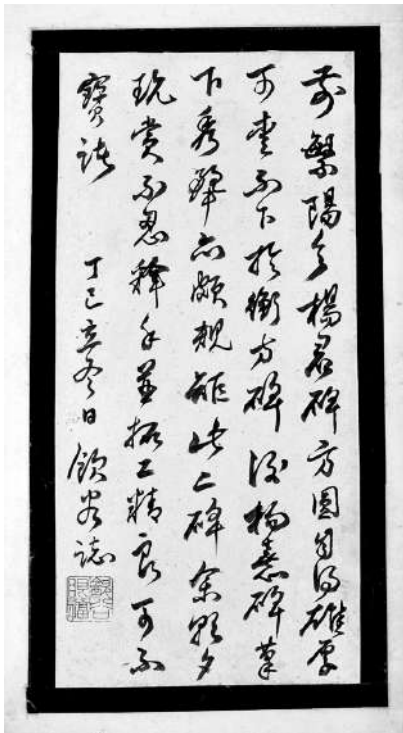 前繁陽令楊君碑方圓自得雄厚
可愛不下於衡方碑後楊碑筆
下秀亦頗規矩此二碑余朝夕
玩賞不忍釋手並拓工精良可不
寶諸 丁巳立冬日 欽谷誌